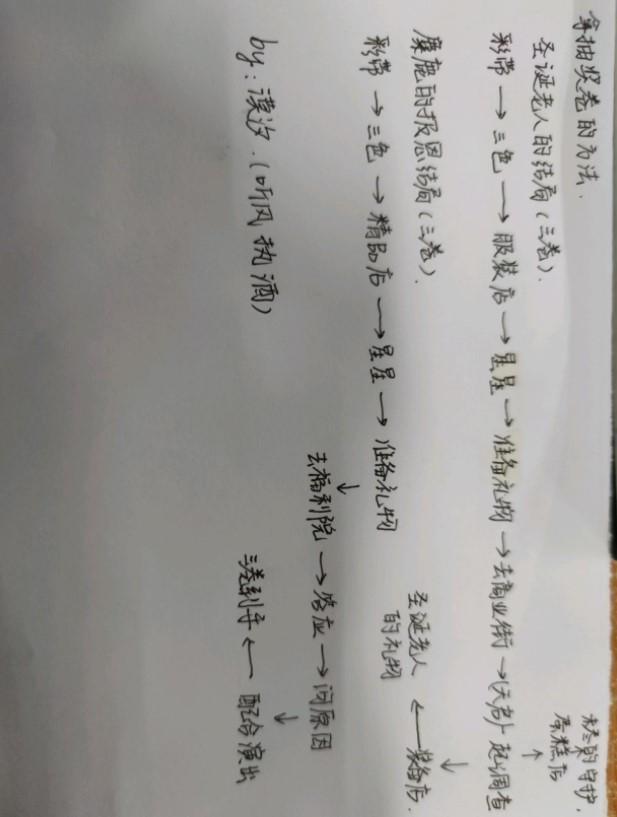 拿抽奖卷的方法.
圣诞老人的结局(三卷).
彩带 → 三色 → 服装店 → 星星 → 准备礼物 → 去商业街 → (无名)一起调查
↑
蛋糕店
的守护,
↓
装备店.
←
圣诞老人
的礼物
麋鹿的报恩结局(三卷).
彩带 → 三色 → 精品店 → 星星 → 准备礼物
↓
去福利院 → 答应 → 问原因
↓
三卷到手 ← 配合演出
by: 漠汐.(听风执酒)